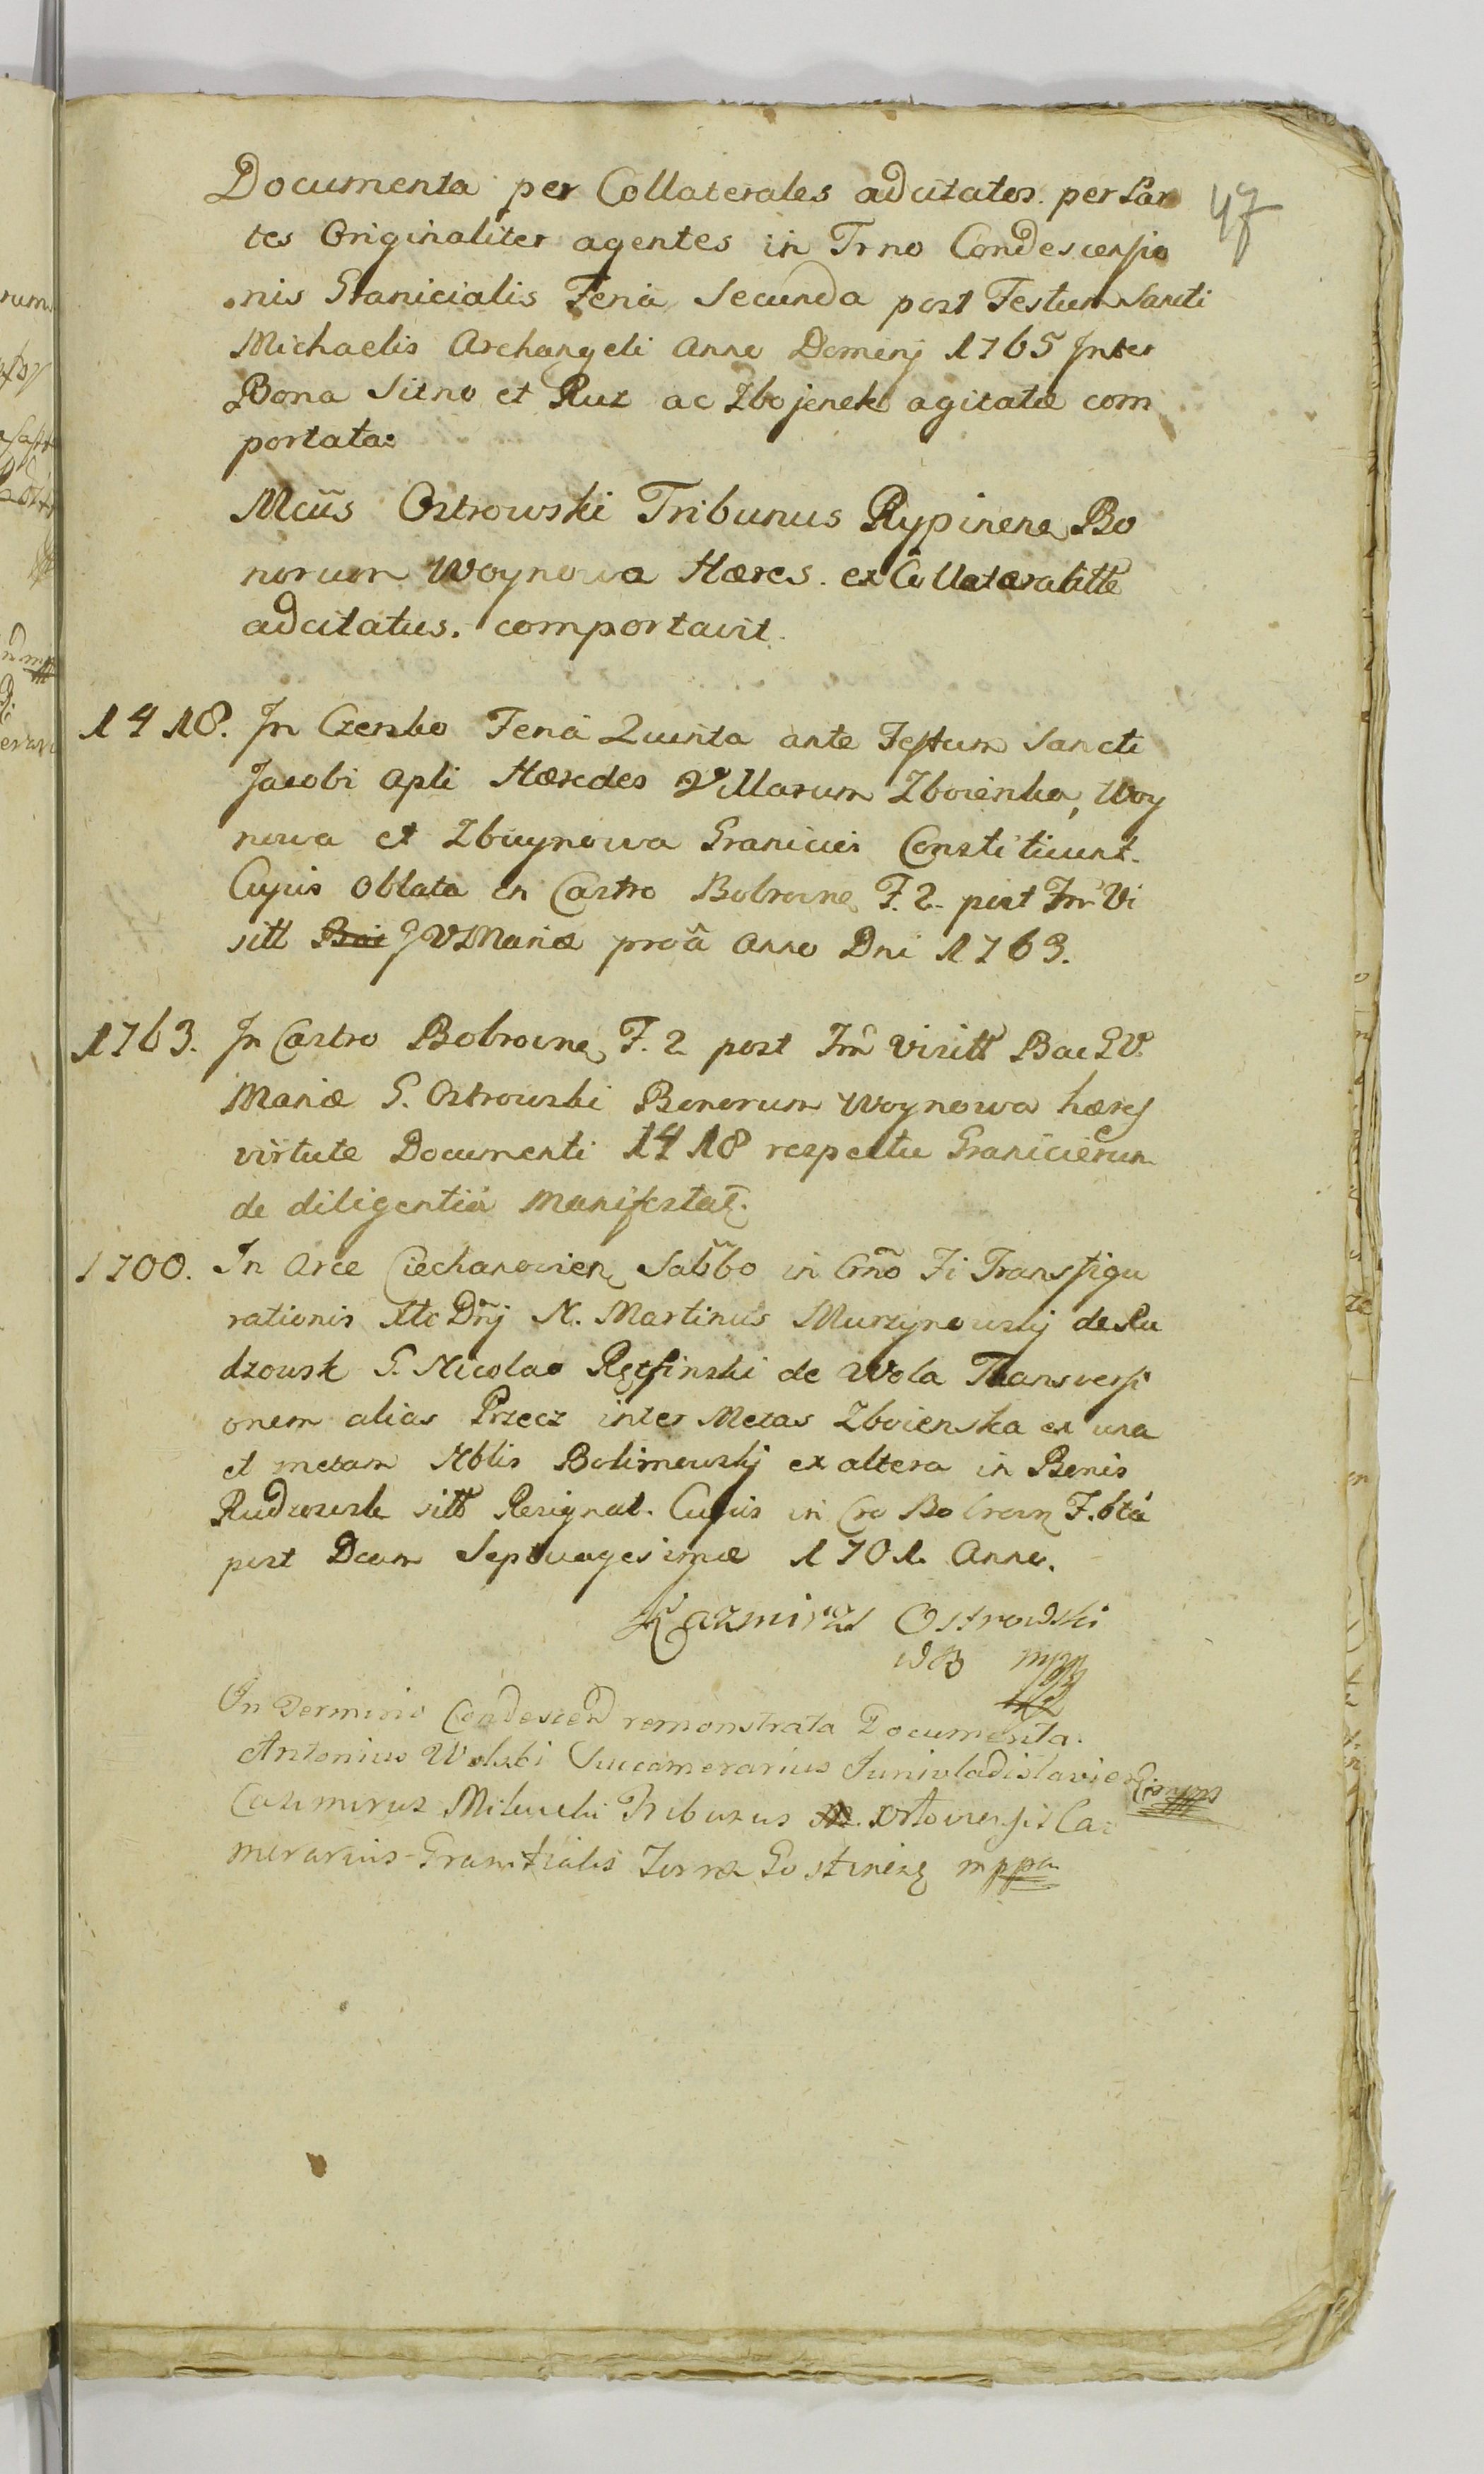 47
Documenta per Collaterales adcitatos. per Par
tes Originaliter agentes in Trno Condescensio
nis Granicialis Feria Secunda post Festum Sancti
Michaelis Archangeli Anno Dominj 1765 Inter
Bona Sitno et Ruz ac Zbojenek agitatæ com
portata:
Mcus Ostrowski Tribunus Rypinens Bo
norum Woynowa Hæres. ex Collateralitte
adcitatus. comportavit.
1418. In Czersko Feria Quinta ante Festum Sancti
Jacobi Apli Hæredes Villarum Zboienka, Woy
nowa et Zbuynowa Granicies Constituunt.
Cujus Oblata in Castro Bobrownę F. 2. post Fm Vi
sitt Bae GVMariæ proã Anno Dni 1763.
1763. In Castro Bobrownę F. 2 post Fm Visitt Bae GV.
Mariæ G. Ostrowski Bonorum Woynowa hæres
virtute Documenti 1418 respectu Granicierum
de diligentia Manifestat.
1700. In Arce Ciechanovien Sabbo in Crno Fi Transfigu
rationis Xte Dnj N. Martinus Murzynowskj de Ru
dzowsk G. Nicolao de Wola Transversi
onem alias Przecz inter Metas Zboienska ex una
et metam Nblis Bolimowskj ex altera in Bonis
Rudzowsk sitt Resignat. Cujus in Cro Bobrown F. 6ta
post Dcam Septuagesimæ 1701. Anno.
Kazmirz Ostrowski
mpp
In Termino Condescen remonstrata Documenta.
Antonius Wolski Succamerarius Junivladislaviens mpp
Casimirus Milewski Tribunus Ca
merarius Granitialis Terræ Gostinenę mppa